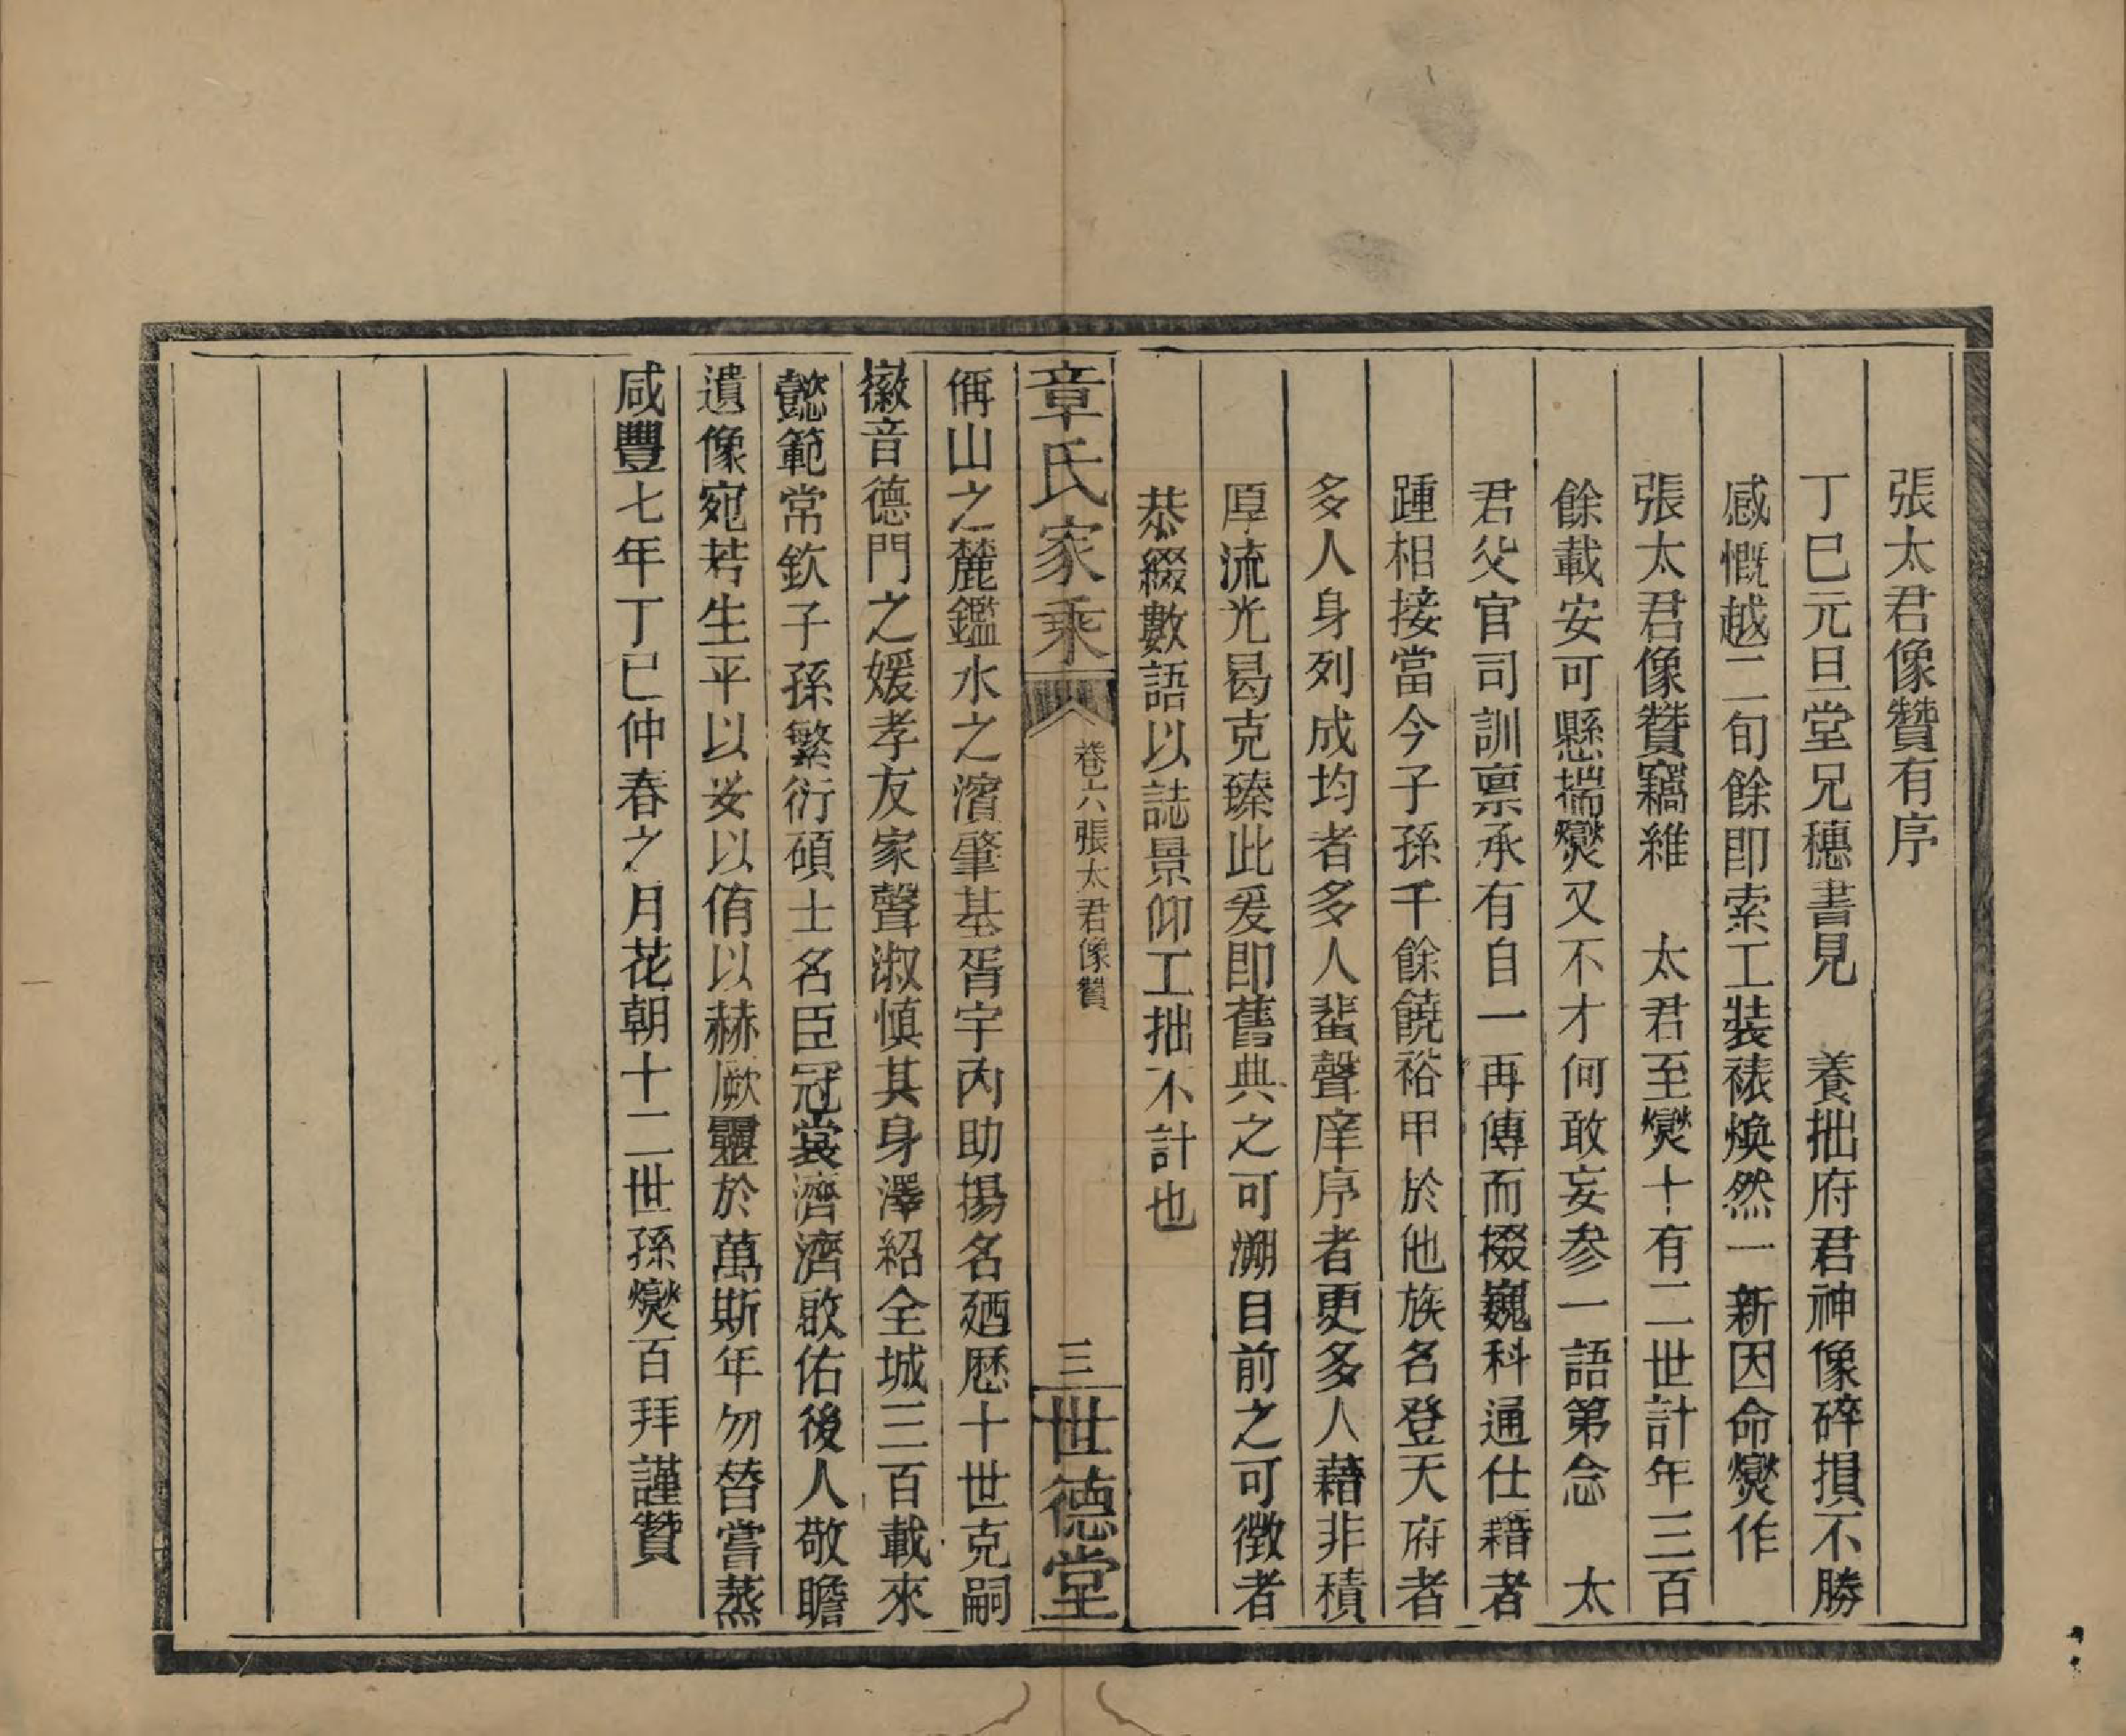 張太君像贊有序
丁巳元旦堂兄穗書見　養拙府君神像碎損不勝
感慨越二旬餘即索工裝裱煥然一新因命爕作
張太君像贊竊維　太君至爕十有二世計年三百
餘載安可懸揣爕又不才何敢妄參一語第念　太
君父官司訓稟承有自一再傳而掇巍科通仕藉者
踵相接當今子孫千餘饒裕甲於他族名登天府者
多人身列成均者多人蜚聲庠序者更多人藉非積
厚流光曷克臻此爰即舊典之可溯目前之可徵者
恭綴數語以誌景仰工拙不計也
章氏家乘
卷六張太君像贊
三
世德堂
偁山之麓鑑水之濱肇基胥宇內助揚名廼歷十世克嗣
徽音德門之媛孝友家聲淑慎其身澤紹全城三百載來
懿範常欽子孫繁衍碩士名臣冠裳濟濟啟佑後人敬瞻
遺像宛若生平以妥以侑以赫厥靈於萬斯年勿替嘗蒸
咸豐七年丁巳仲春之月花朝十二世孫爕百拜謹贊